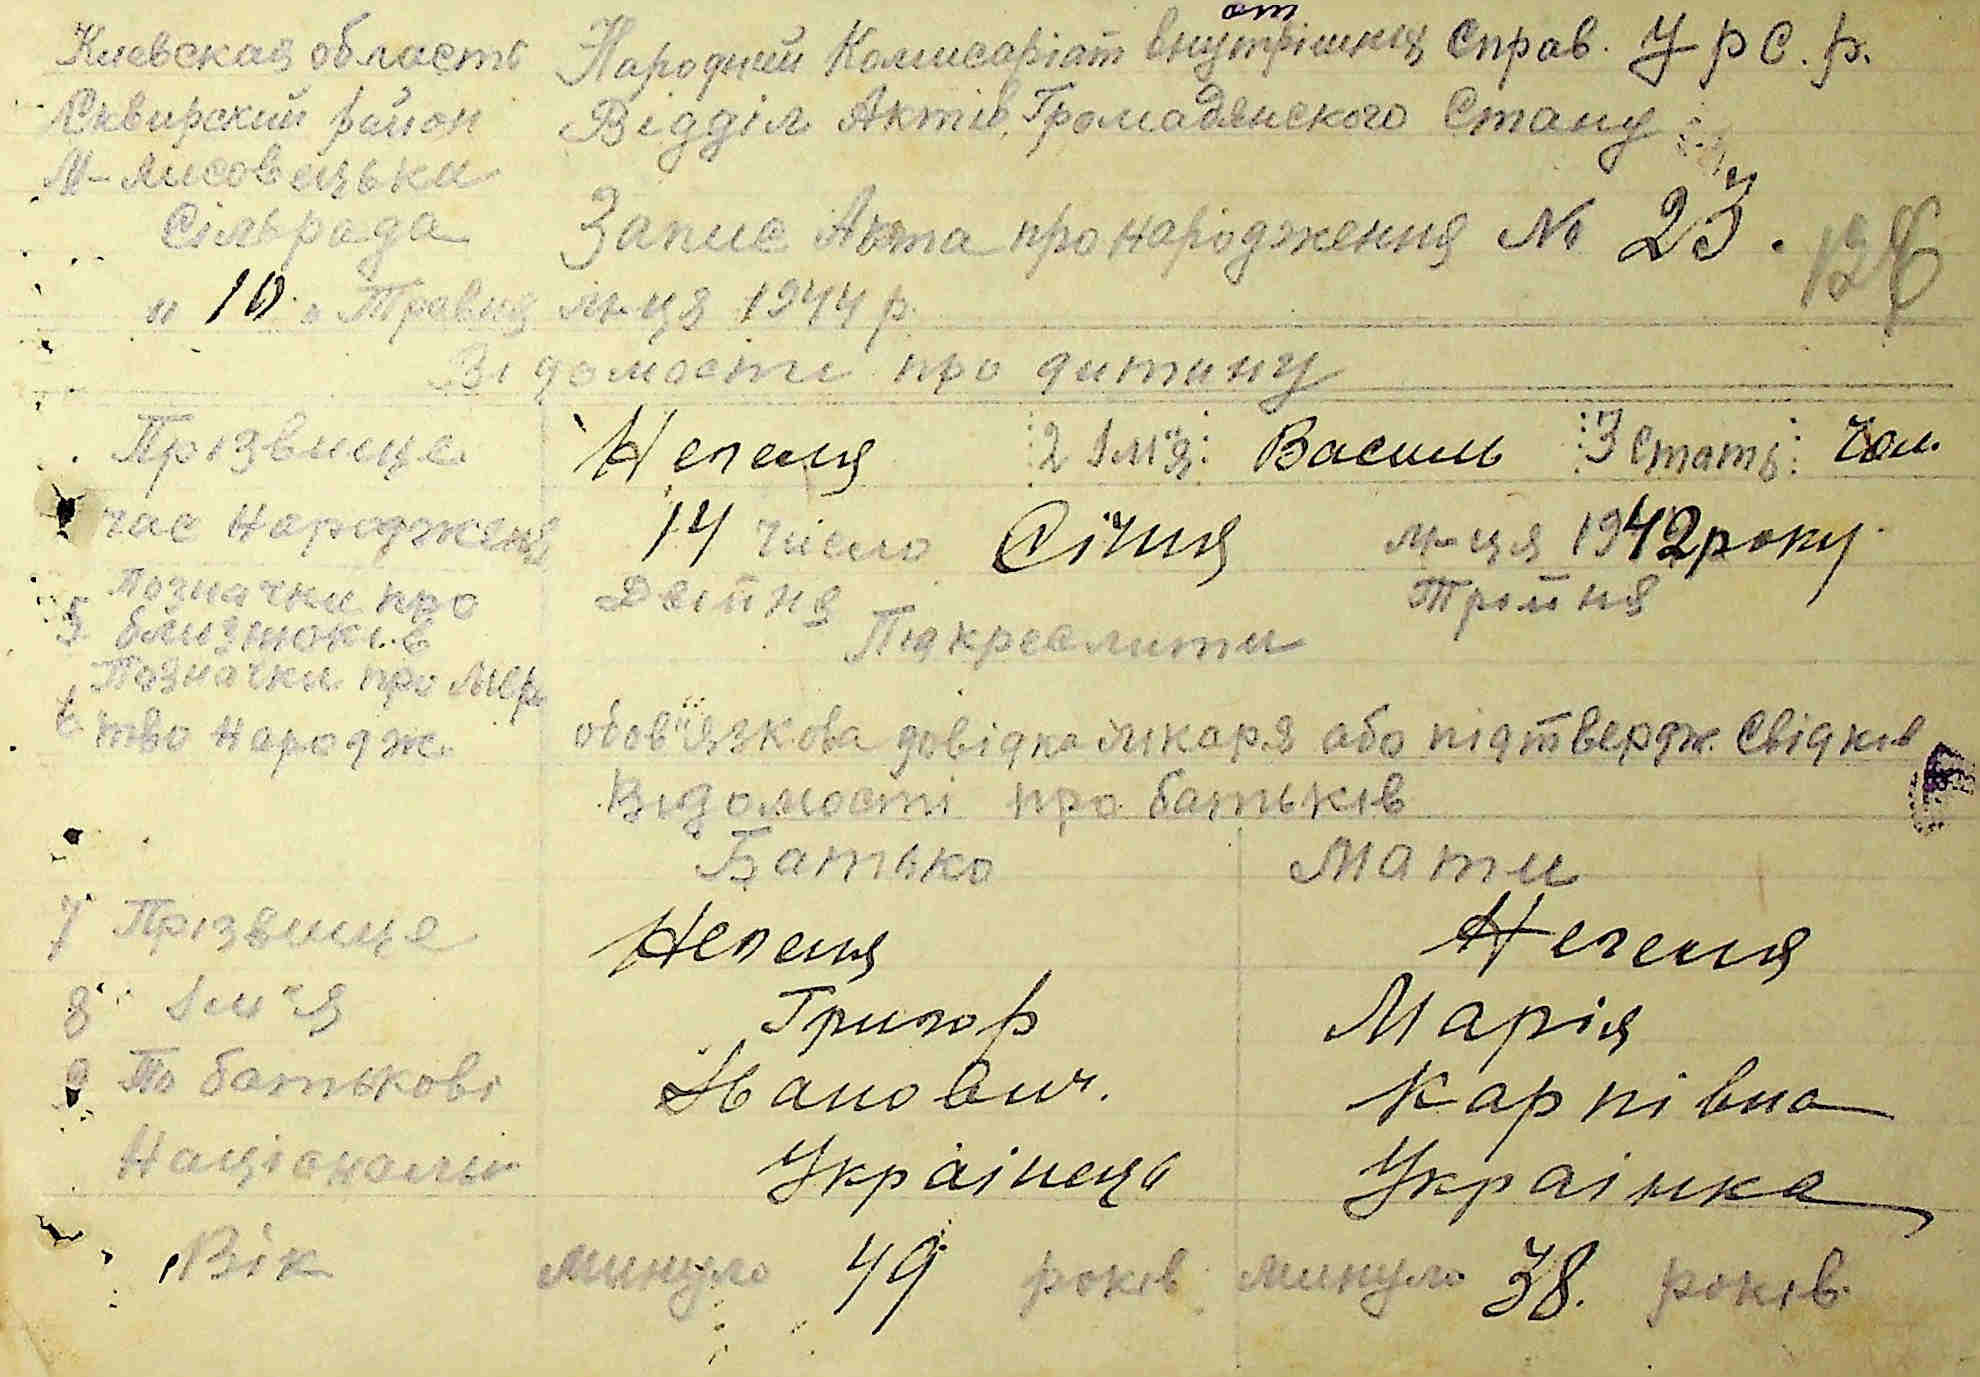 от
Киевская область Народний Комисаріат Внутрішніх Справ. УРС.р.
Сквирский район Відділ Актів Громадянского Стану
М-Лисовецька
Сільрада Запис Акта про народження № 23. 126
" 10 " Травня м-ця 1944 р.
Відомости про дитину
Прізвище Негеля 2 Ім'я: Василь 3 Стать: Чол.
час Народженя 14 число Січня м-ця 1942 року
Позначки про Двійня Трійня
5 близнюків Підкреслити
Позначки про мер
6 тво Народж. обов'язкова довідка лікаря або підтвердж. Свідків
Відомості про батьків
Батько Мати
7 Прізвище Негеля Негеля
8 Ім'я Григор Марія
9 По батькові Іванович. Карпівна
Національн Українець Українка
Вік минуло 49 років минуло 38. років.